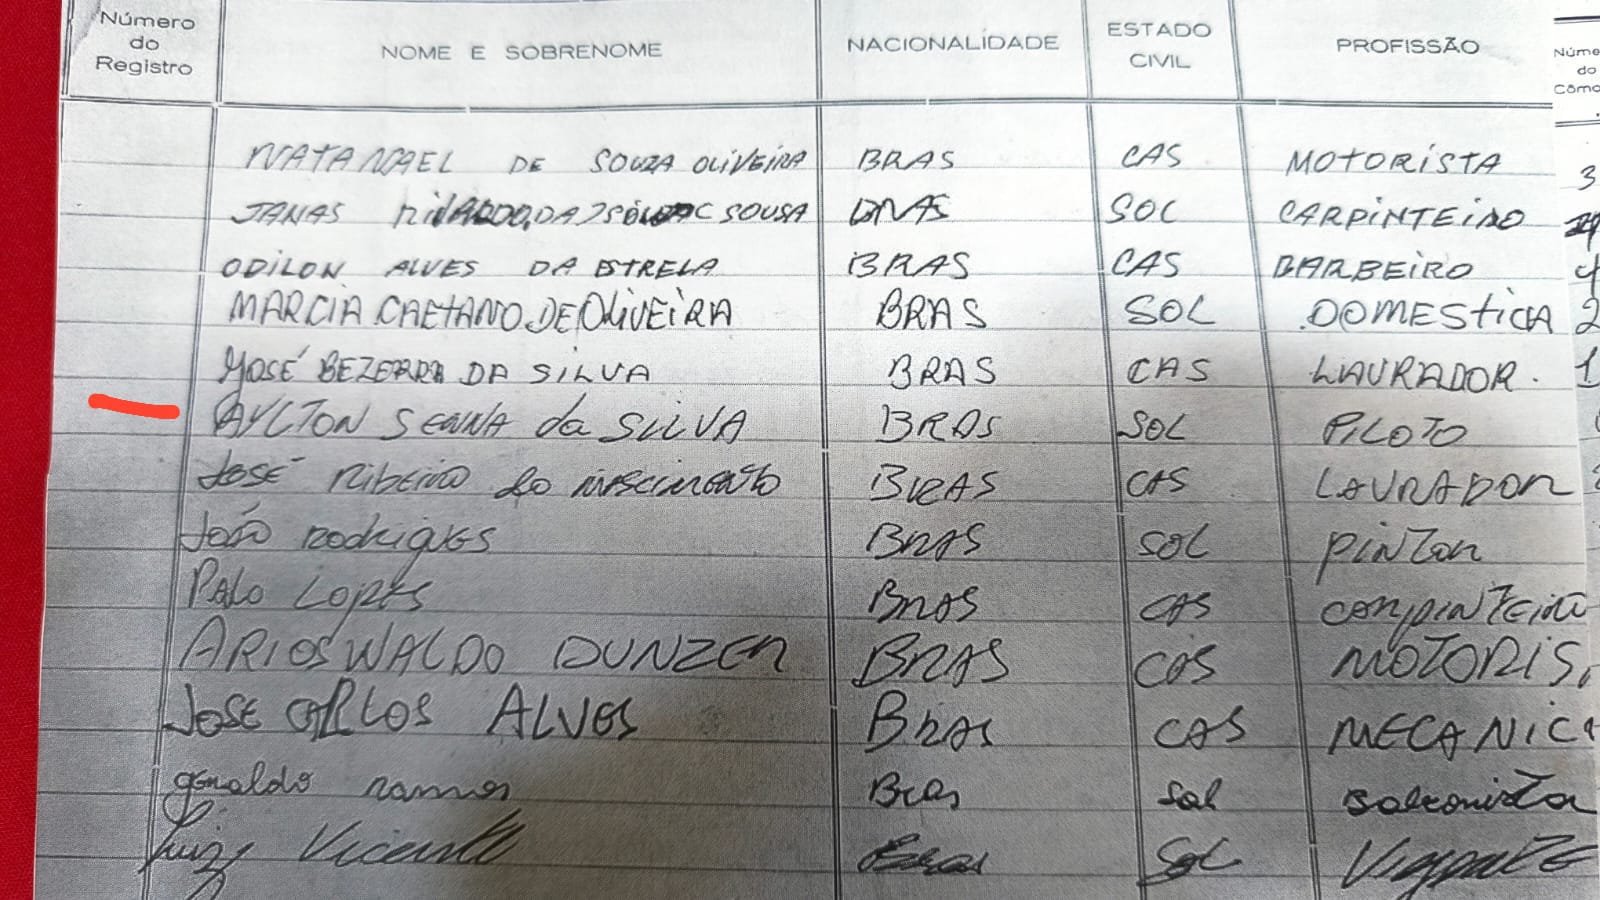 Número do Registro NOME E SOBRENOME NACIONALIDADE ESTADO CIVIL PROFISSÃO Núme do Cômo
NATANAEL DE SOUZA OLIVEIRA BRAS CAS MOTORISTA 3
JANAS SOUSA BRAS SOL CARPINTEIRO
ODILON ALVES DA ESTRELA BRAS CAS BARBEIRO 4
MARCIA CAETANO DE OLIVEIRA BRAS SOL DOMESTICA 2
JOSÉ BEZERRA DA SILVA BRAS CAS LAVRADOR. 1
AYLTON SENNA da SILVA BRAS SOL PILOTO
José Ribeiro do nascimento BRAS CAS LAVRADOR
João Rodrigues BRAS SOL pintor
Palo Lopes BRAS CAS carpinteiro
ARIOSWALDO DUNZER BRAS CAS MOTORIS.
JOSE CARLOS ALVES BRAS CAS MECANIC
geraldo ramos Bras Sol balconista
Luiz Vicente Bras Sol